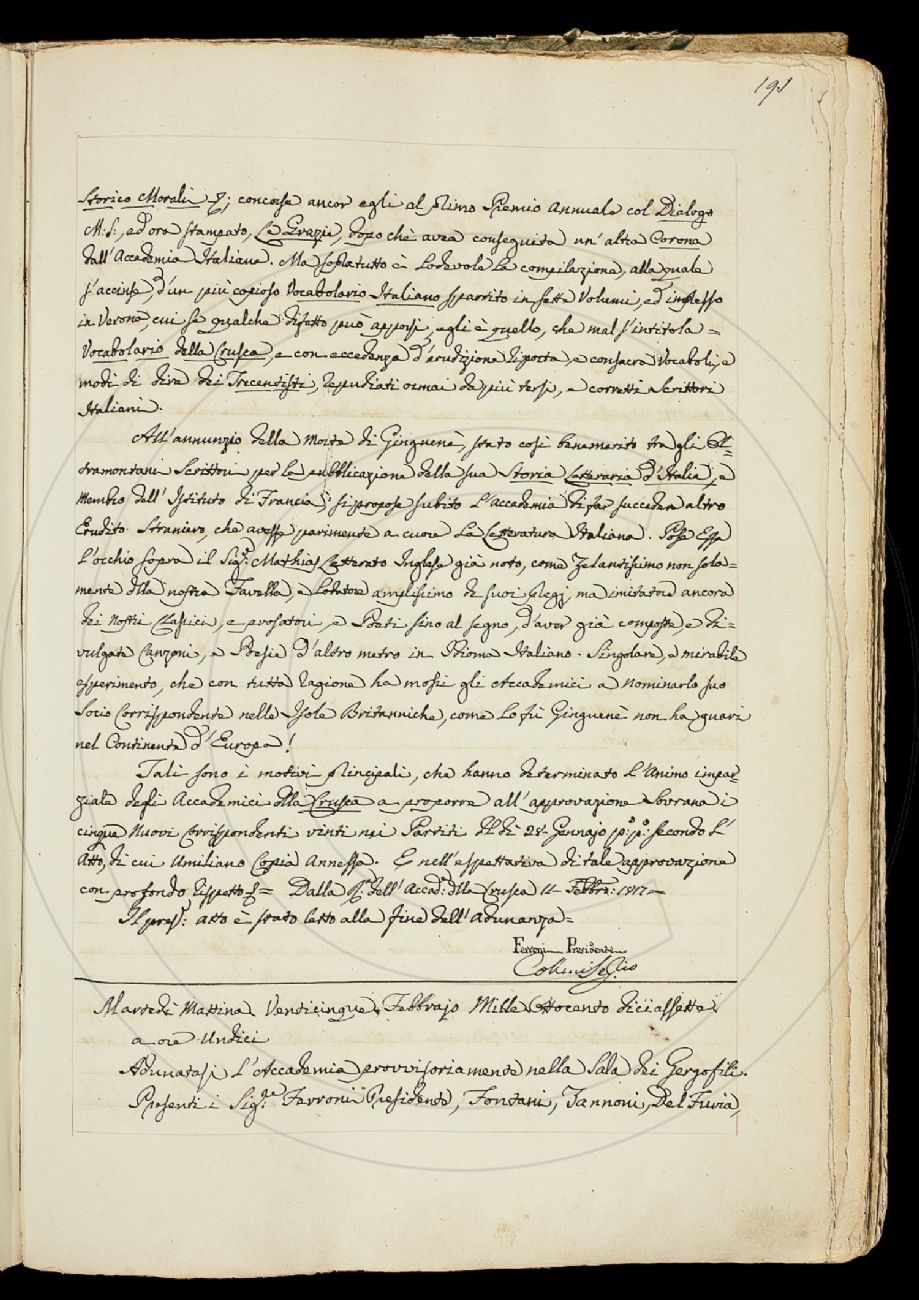 191
Storico Morali &; concorse ancor egli al primo Premio annuale col Dialogo
M.S., ed ora stampato, Le Grazie, dopo chè avea conseguita un'altra Corona
dall'Accademia Italiana. Ma soprattutto è Lodevole la compilazione, alla quale
s'accinse, d'un più copioso Vocabolario Italiano spartito in sette Volumi, ed impresso
in Verona, cui se qualche difetto può apporsi, egli è quello, che mal s'intitola =
Vocabolario della Crusca, e con eccedenza d'erudizione riporta, e consacra Vocaboli, e
modi di dire dei Trecentisti, repudiati ormai da più tersi, e corretti Scrittori
Italiani.
All'annunzio della Morte di Ginguenè, stato così benemerito tra gli Ol=
tramontani Scrittori per la pubblicazione della sua Storia Letteraria d'Italia, e
Membro dell'Istituto di Francia, si propose subito L'Accademia di far succeder altro
Erudito Straniero, che avesse parimente a cuore La Letteratura Italiana. Pose Essa
L'occhio sopra il Sig.r Mathias Letterato Inglese già noto, come Zelantissimo non sola=
mente della nostra Favella, e Lodatore amplissimo de suoi pregj, ma imitatore ancora
dei nostri Classici, e prosatori, e Poeti sino al segno, d'aver già composte, e di=
vulgate Canzoni, e Poesie d'altro metro in Idioma Italiano. Singolare, e mirabile
esperimento, che con tutta ragione ha mossi gli Accademici a nominarlo suo
Socio Corrispondente nelle Isole Britanniche, come Lo fù Ginguenè non ha guari
nel Continente d'Europa!
Tali sono i motivi principali, che hanno determinato L'Animo impar=
ziale degli Accademici della Crusca a proporre all'approvazione Sovrana i
cinque Nuovi Corrispondenti vinti nei Partiti del di 28. Gennajo p:o p:o secondo L'
Atto, di cui Umiliano Copia Annessa. E nell'espettativa di tale approvazione
con profondo rispetto &= Dalla dell'Accad.a della Crusca 11 Febbr: 1817=
Il pres.e atto è stato letto alla fine dell'Adunanza=
Ferroni Presidente
Collini Seg.rio
Martedì Mattina Venticinque Febbrajo Mille Ottocento diciassette
a ore Undici
Adunatasi L'Accademia provvisoriamente nella Sala dei Gergofili.
Presenti i Sig.ri Ferroni Presidente, Fontani, Zannoni, Del Furia,